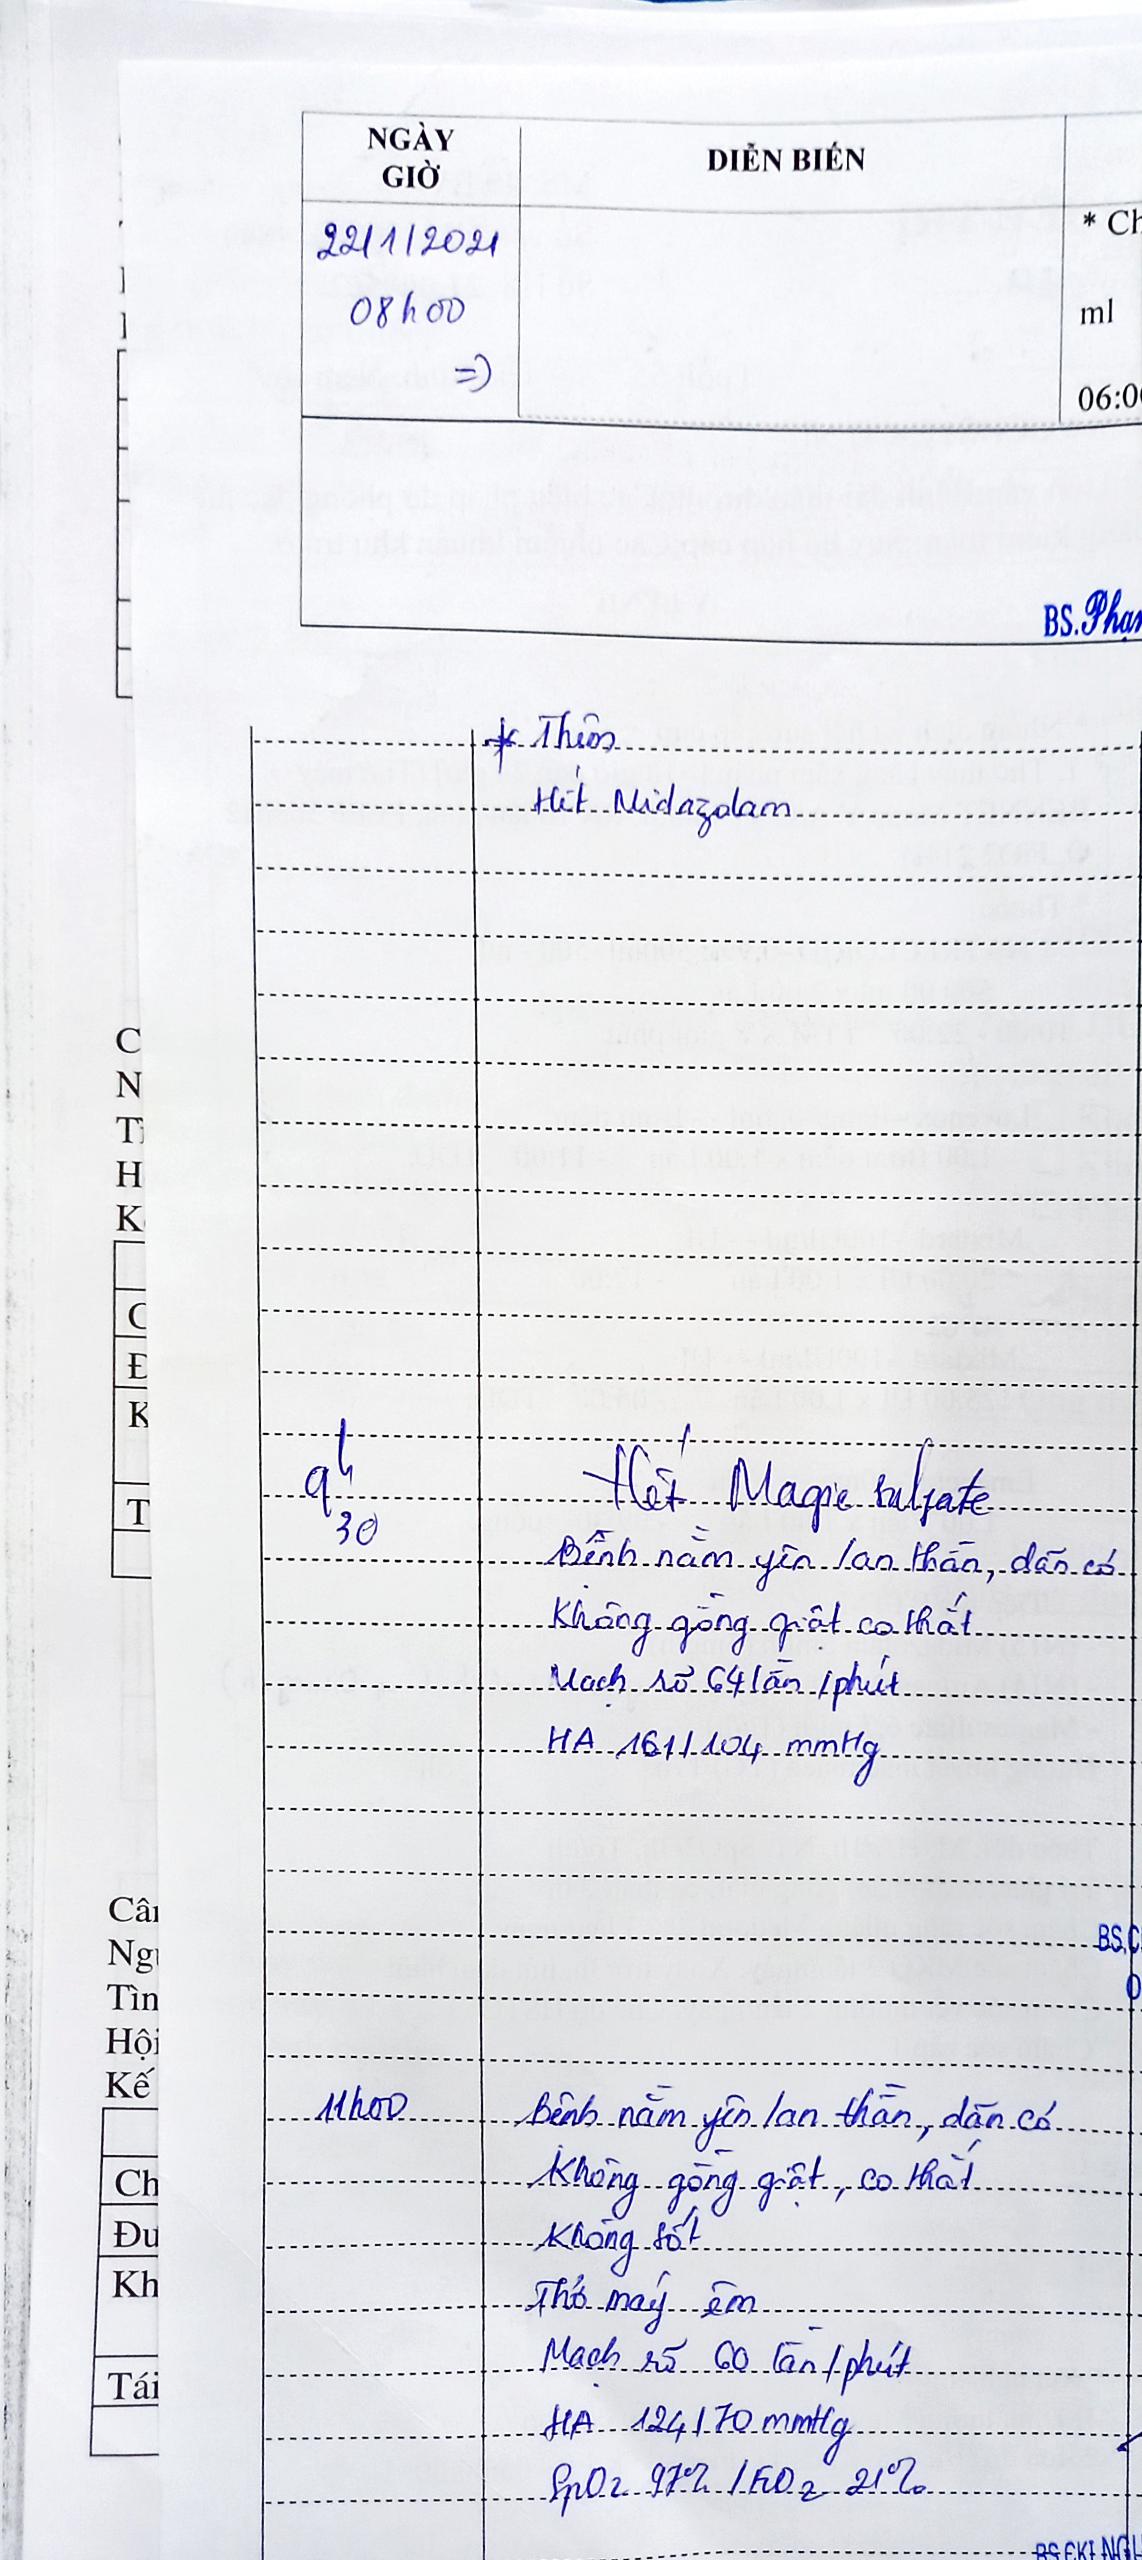 NGÀY
GIỜ
DIỄN BIẾN
22/1/2021
08h00
=)
* Ch
ml
06:00
BS. Phạm
* Thêm
Hết Midazolam
9h30
Hết Magie sulfate
Bệnh nằm yên lan thần, dãn cơ
Không gồng giật co thắt
Mạch rõ 64 lần/phút
HA 161/104 mmHg
C
N
H
C
Đ
K
T
BS.C
Tìn
Hội
Kế
11h00
Bệnh nằm yên lan thần, dãn cơ
Không gồng giật, co thắt
Không sốt
Thở máy êm
Mạch rõ 60 lần/phút
HA 124/70 mmHg
SpO2 97% / FiO2 21%
Ch
Đu
Kh
Tái
BS.CKI.NGU